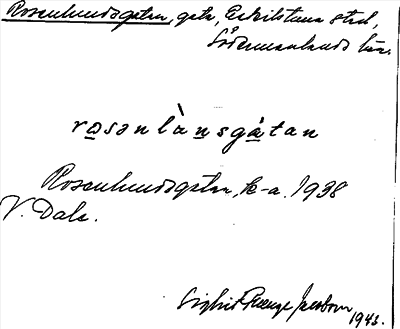 Rosenlundsgatan, gata, Eskilstuna stad,
Södermanlands län.
rosənlànsgátan
Rosenlundsgatan, k-a. 1938
V. Dala.
Sigfrid Jacobson
1943.